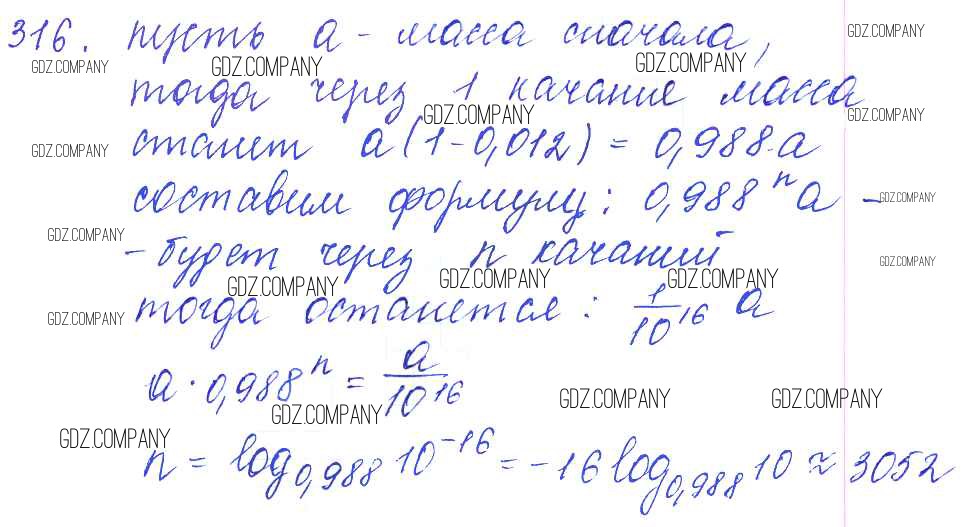 316. пусть a - масса сначала,
GDZ.COMPANY
GDZ.COMPANY GDZ.COMPANY GDZ.COMPANY
тогда через 1 качание масса
GDZ.COMPANY GDZ.COMPANY
GDZ.COMPANY станет a(1-0,012) = 0,988·a
составим формулу: 0,988ⁿa -
GDZ.COMPANY
GDZ.COMPANY
- будет через n качаний
GDZ.COMPANY
GDZ.COMPANY GDZ.COMPANY GDZ.COMPANY
GDZ.COMPANY тогда останется: 1/10¹⁶ a
a · 0,988ⁿ = a/10¹⁶
GDZ.COMPANY GDZ.COMPANY GDZ.COMPANY
GDZ.COMPANY
n = log₀,₉₈₈ 10⁻¹⁶ = -16 log₀,₉₈₈ 10 ≈ 3052